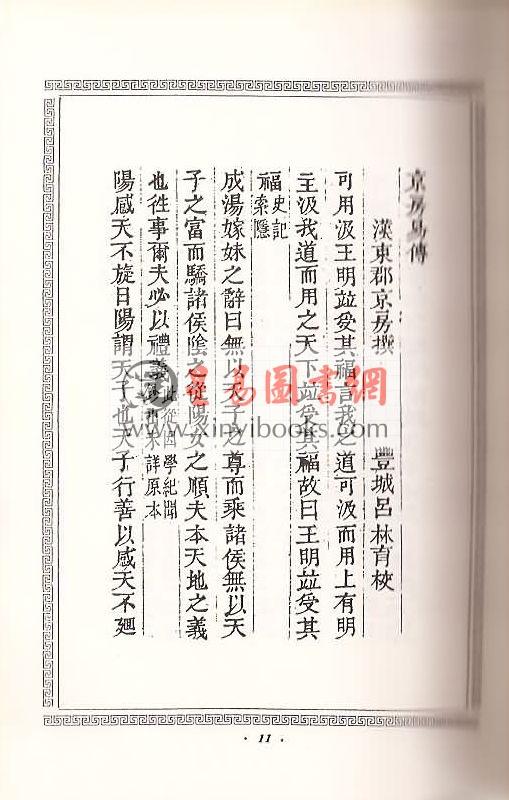 京房易傳
漢東郡京房撰 豐城呂林育校
可用汲王明竝受其福言我之道可汲而用上有明
主汲我道而用之天下竝受其福故曰王明竝受其
福史記
索隱
成湯嫁妹之辭曰無以天子之尊而乘諸侯無以天
子之富而驕諸侯陰之從陽女之順夫本天地之義
也徃事爾夫必以禮義此從困學紀聞
詳原本
陽感天不旋日陽謂天子也天子行善以感天不廻
易圖書網
www.xinyibooks.com
· 11 ·